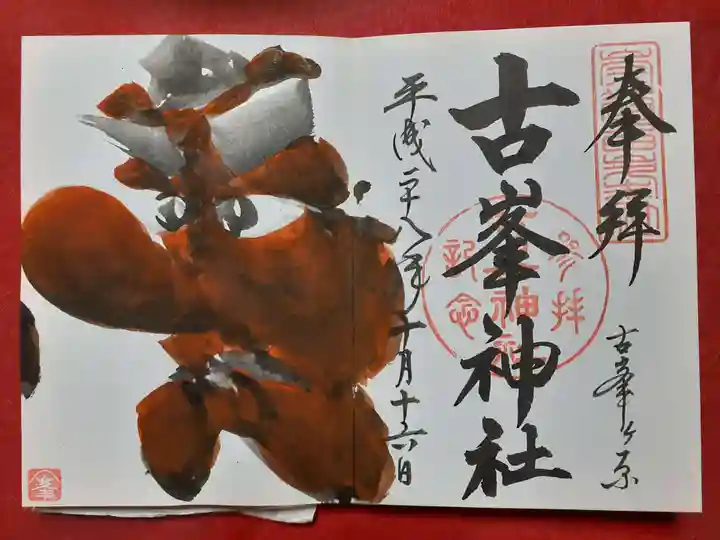 奉拝
古峯ヶ原
古峯神社
参拝
記念
平成二十八年十月十六日